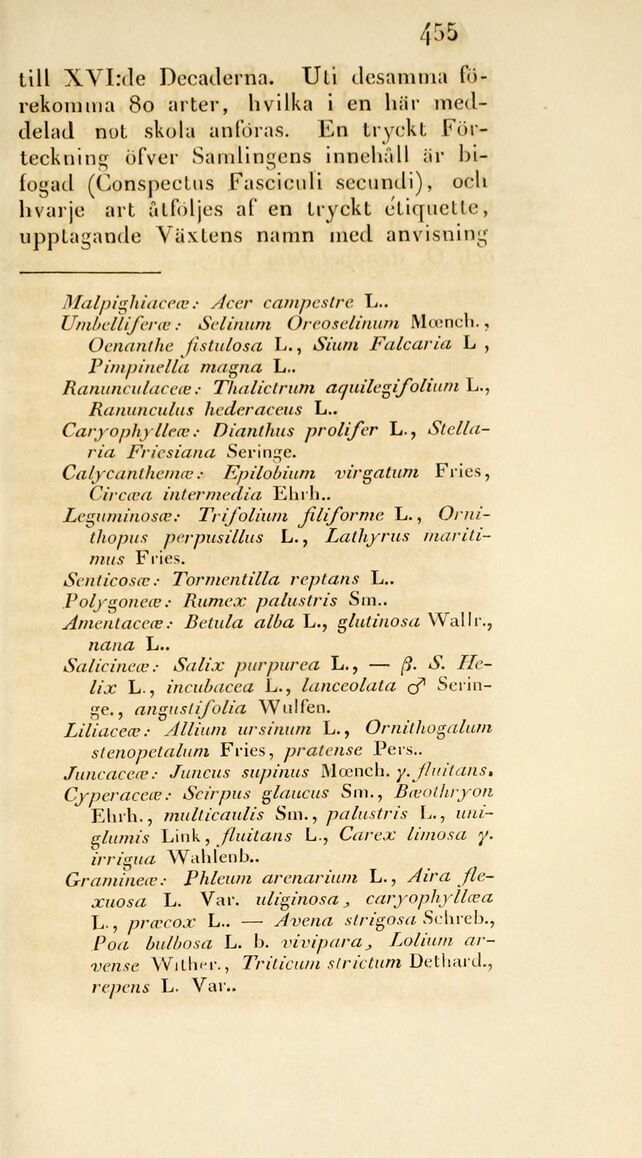 455
till XVI:de Decaderna. Uti desamma fö-
rekomma 80 arter, hvilka i en här med-
delad not skola anföras. En tryckt För-
teckning öfver Samlingens innehåll är bi-
fogad (Conspectus Fasciculi secundi), och
hvarje art åtföljes af en tryckt étiquette,
upptagande Växtens namn med anvisning
Malpighiaceæ: Acer campestre L..
Umbelliferæ: Selinum Oreoselinum Mœnch.,
Oenanthe fistulosa L., Sium Falcaria L ,
Pimpinella magna L..
Ranunculaceæ: Thalictrum aquilegifolium L.,
Ranunculus hederaceus L..
Caryophylleæ: Dianthus prolifer L., Stella-
ria Friesiana Seringe.
Calycanthemæ: Epilobium virgatum Fries,
Circæa intermedia Ehrh..
Leguminosæ: Trifolium filiforme L., Orni-
thopus perpusillus L., Lathyrus mariti-
mus Fries.
Senticosæ: Tormentilla reptans L..
Polygoneæ: Rumex palustris Sm..
Amentaceæ: Betula alba L., glutinosa Wallr.,
nana L..
Salicineæ: Salix purpurea L., — β. S. He-
lix L., incubacea L., lanceolata ♂ Serin-
ge., angustifolia Wulfen.
Liliaceæ: Allium ursinum L., Ornithogalum
stenopetalum Fries, pratense Pers..
Juncaceæ: Juncus supinus Mœnch. γ. fluitans.
Cyperaceæ: Scirpus glaucus Sm., Bæothryon
Ehrh., multicaulis Sm., palustris L., uni-
glumis Link, fluitans L., Carex limosa γ.
irrigua Wahlenb..
Gramineæ: Phleum arenarium L., Aira fle-
xuosa L. Var. uliginosa, caryophyllæa
L., præcox L.. — Avena strigosa Schreb.,
Poa bulbosa L. b. vivipara, Lolium ar-
vense Wither., Triticum strictum Dethard.,
repens L. Var..